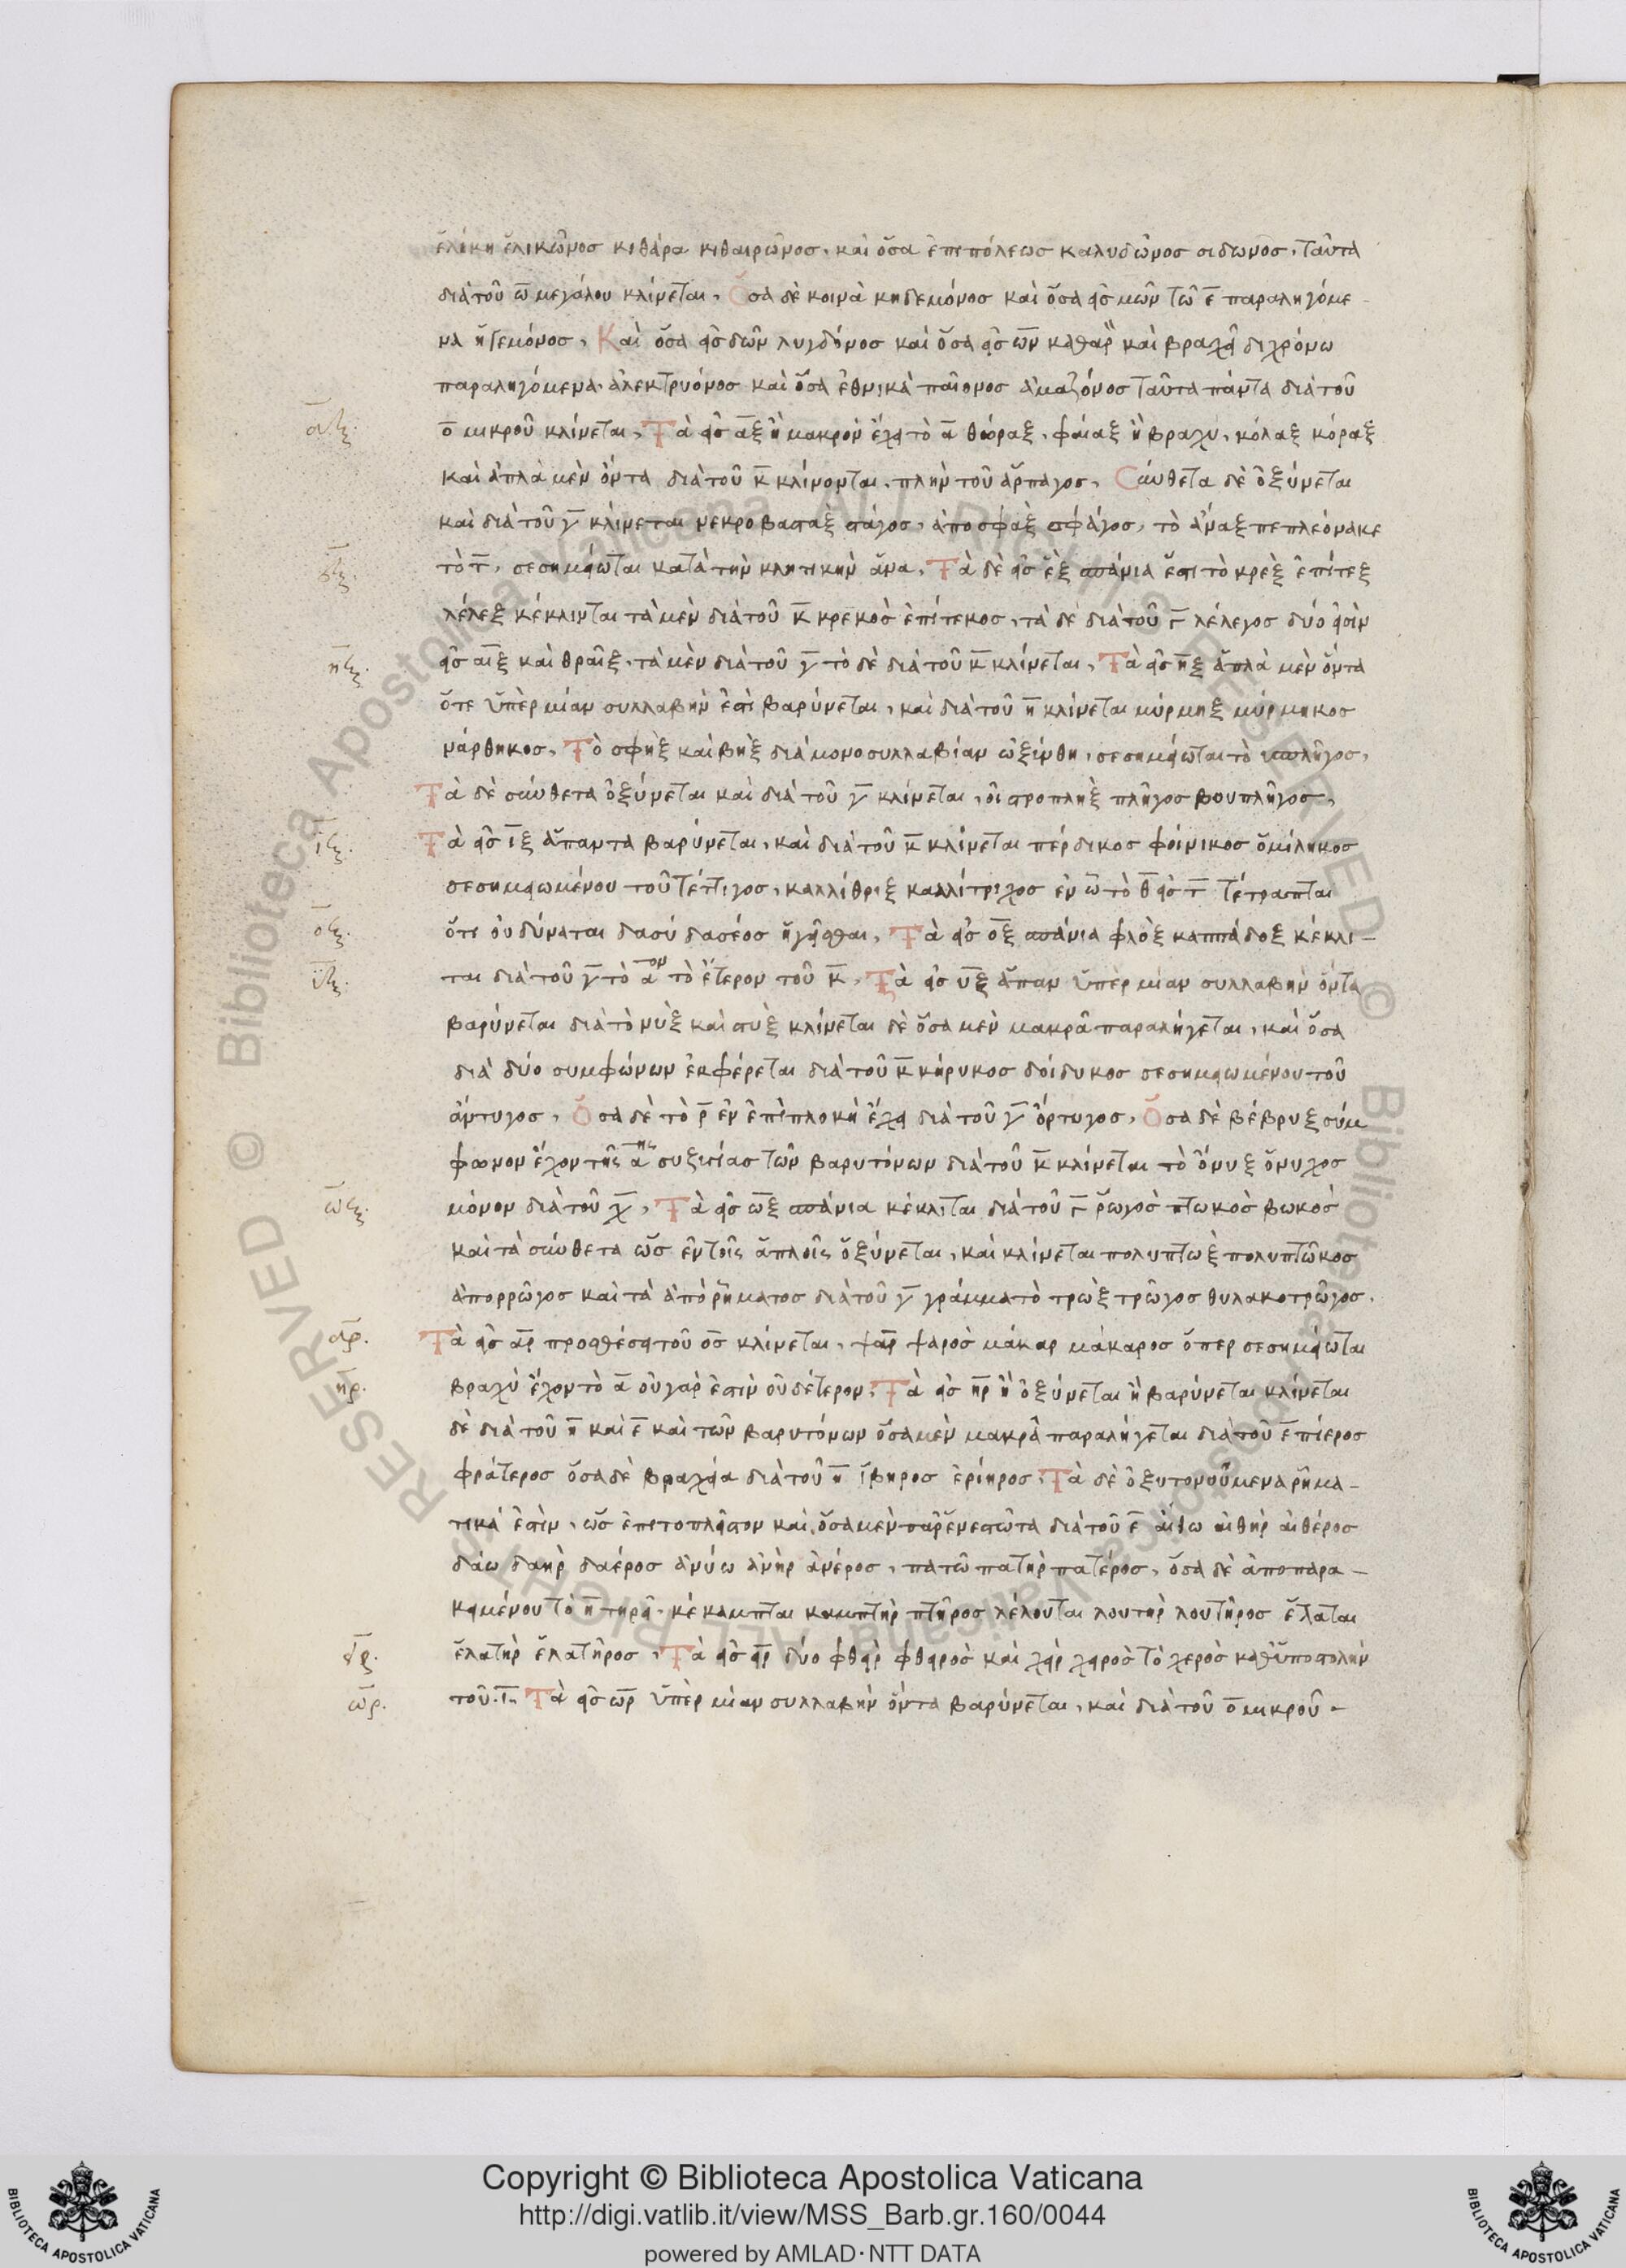 ἑλίκη ἑλικῶνος κιθάρα κιθαιρῶνος, καὶ ὅσα ἐπὶ πόλεως καλυδῶνος σιδῶνος, ταῦτα
διὰ τοῦ ω̅ μεγάλου κλίνεται, Ὅσα δὲ κοινὰ κηδεμόνος καὶ ὅσα εἰς μων τῶ ε̅ παραληγόμε-
να ἡγεμόνος, Καὶ ὅσα εἰς δων λυγδόνος καὶ ὅσα εἰς ω̅ν̅ καθαρ καὶ βραχεῖ διχρόνω
παραληγόμενα ἀλεκτρυόνος καὶ ὅσα ἐθνικὰ παίονος ἀμαζόνος ταῦτα πάντα διὰ τοῦ
α̅ξ̅.
ο̅ μικροῦ κλίνεται, Τὰ εἰς α̅ξ̅ ἢ μακρὸν ἔχει τὸ α̅ θώραξ, φαίαξ ἢ βραχὺ, κόλαξ κόραξ
καὶ ἁπλᾶ μὲν ὄντα διὰ τοῦ κ̅ κλίνονται, πλὴν τοῦ ἅρπαγος, Σύνθετα δὲ ὀξύνεται
καὶ διὰ τοῦ γ̅ κλίνεται νεκροβασταξ στάγος, ἀποσφαξ σφάγος, τὸ ἄναξ πεπλεόνακε
ε̅ξ̅.
τὸ τ̅, σεσημείωται κατὰ τὴν κλητικὴν ἄνα, Τὰ δὲ εἰς ἐξ σπάνια ἔστι τὸ κρὲξ ἐπίτεξ
λέλεξ κέκλινται τὰ μὲν διὰ τοῦ κ̅ κρεκὸς ἐπίτεκος, τὰ δὲ διὰ τοῦ γ̅ λέλεγος δύο εἰσὶν
η̅ξ̅.
εἰς αιξ καὶ θραιξ, τὰ μὲν διὰ τοῦ γ̅ τὸ δὲ διὰ τοῦ κ̅ κλίνεται, Τὰ εἰς η̅ξ ἁπλᾶ μὲν ὄντα
ὅτε ὑπὲρ μίαν συλλαβήν ἐστι βαρύνεται, καὶ διὰ τοῦ η̅ κλίνεται μύρμηξ μύρμηκος
νάρθηκος, Τὸ σφὴξ καὶ βὴξ διὰ μονοσυλλαβίαν ὠξύνθη, σεσημείωται τὸ πλῆγος,
Τὰ δὲ σύνθετα ὀξύνεται καὶ διὰ τοῦ γ̅ κλίνεται, οἰστροπλὴξ πλῆγος βουπλῆγος,
ι̅ξ̅.
Τὰ εἰς ι̅ξ ἅπαντα βαρύνεται, καὶ διὰ τοῦ κ̅ κλίνεται πέρδικος φοίνικος ὁμίληκος
σεσημειωμένου τοῦ τέττιγος, καλλίθριξ καλλίτριχος ἐν ὧ τὸ θ̅ εἰς τ̅ τέτραπται
ο̅ξ̅.
ὅτι οὐ δύναται δασὺ δασέος ἡγεῖσθαι, Τὰ εἰς ο̅ξ̅ σπάνια φλὸξ καππάδοξ κέκλι-
υ̅ξ̅.
ται διὰ τοῦ γ̅ τὸ α̅ον τὸ ἕτερον τοῦ κ̅, Τὰ εἰς υ̅ξ̅ ἅπαν ὑπὲρ μίαν συλλαβὴν ὄντα
βαρύνεται διὰ τὸ νὺξ καὶ στὺξ κλίνεται δὲ ὅσα μὲν μακρᾶ παραλήγεται, καὶ ὅσα
διὰ δύο συμφώνων ἐκφέρεται διὰ τοῦ κ̅ κήρυκος δοίδυκος σεσημειωμένου τοῦ
ἄντυγος, Ὅσα δὲ τὸ ρ̅ ἐν ἐπιπλοκὴ ἔχει διὰ τοῦ γ̅ ὄρτυγος, Ὅσα δὲ βέβρυξ σύμ
φωνον ἔχον τῆς α̅ης συζυγίας τῶν βαρυτόνων διὰ τοῦ κ̅ κλίνεται τὸ ὄνυξ ὄνυχος
ω̅ξ̅.
μόνον διὰ τοῦ χ̅, Τὰ εἰς ω̅ξ̅ σπάνια κέκλιται διὰ τοῦ γ̅ ῥωγὸς πτωκὸς βωκὸς
καὶ τὰ σύνθετα ὡς ἐν τοῖς ἁπλοῖς ὀξύνεται, καὶ κλίνεται πολυπτωξ πολυπτῶκος
ἀπορρῶγος καὶ τὰ ἀπὸ ῥήματος διὰ τοῦ γ̅ γράμμα τὸ τρὼξ τρῶγος θυλακοτρῶγος.
α̅ρ̅.
Τὰ εἰς α̅ρ̅ προσθέσει τοῦ ο̅ς̅ κλίνεται, ψαρ ψαρὸς μάκαρ μάκαρος ὅπερ σεσημείωται
η̅ρ̅.
βραχὺ ἔχον τὸ α̅ οὐ γάρ ἐστιν οὐδέτερον, Τὰ εἰς η̅ρ̅ ἢ ὀξύνεται ἢ βαρύνεται κλίνεται
δὲ διὰ τοῦ η̅ καὶ ε̅ καὶ τῶν βαρυτόνων ὅσα μὲν μακρᾶ παραλήγεται διὰ τοῦ ε̅ πίερος
φράτερος ὅσα δὲ βραχεία διὰ τοῦ η̅ ἴβηρος ἐρίηρος, Τὰ δὲ ὀξυτονούμενα ῥημα-
τικά ἐστιν, ὡς ἐπιτοπλεῖστον καὶ ὅσα μὲν παρ' ἐνεστῶτα διὰ τοῦ ε̅ αἴθω αἰθὴρ αἰθέρος
δάω δαὴρ δαέρος ἀνύω ἀνὴρ ἀνέρος, πατῶ πατὴρ πατέρος, ὅσα δὲ ἀπὸ παρα-
κειμένου τὸ η̅ τηρεῖ, κέκαμπται καμπτὴρ πτῆρος λέλουται λουτὴρ λουτῆρος ἤλαται
ε̅ρ̅.
ἐλατὴρ ἐλατῆρος, Τὰ εἰς ειρ δύο φθειρ φθειρὸς καὶ χεὶρ χειρὸς τὸ χερὸς καθ' ὑποστολὴν
ω̅ρ̅.
τοῦ ι̅, Τὰ εἰς ω̅ρ̅ ὑπὲρ μίαν συλλαβὴν ὄντα βαρύνεται, καὶ διὰ τοῦ ο̅ μικροῦ -
Copyright © Biblioteca Apostolica Vaticana
http://digi.vatlib.it/view/MSS_Barb.gr.160/0044
powered by AMLAD·NTT DATA